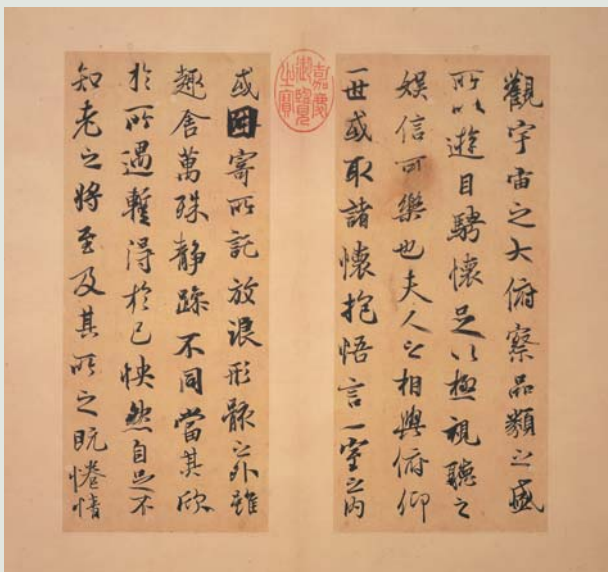 觀宇宙之大俯察品類之盛
所以遊目騁懷足以極視聽之
娛信可樂也夫人之相與俯仰
一世或取諸懷抱悟言一室之內
嘉慶御覽之寶
或因寄所託放浪形骸之外雖
趣舍萬殊静躁不同當其欣
於所遇暫得於己怏然自足不
知老之將至及其所之既惓情